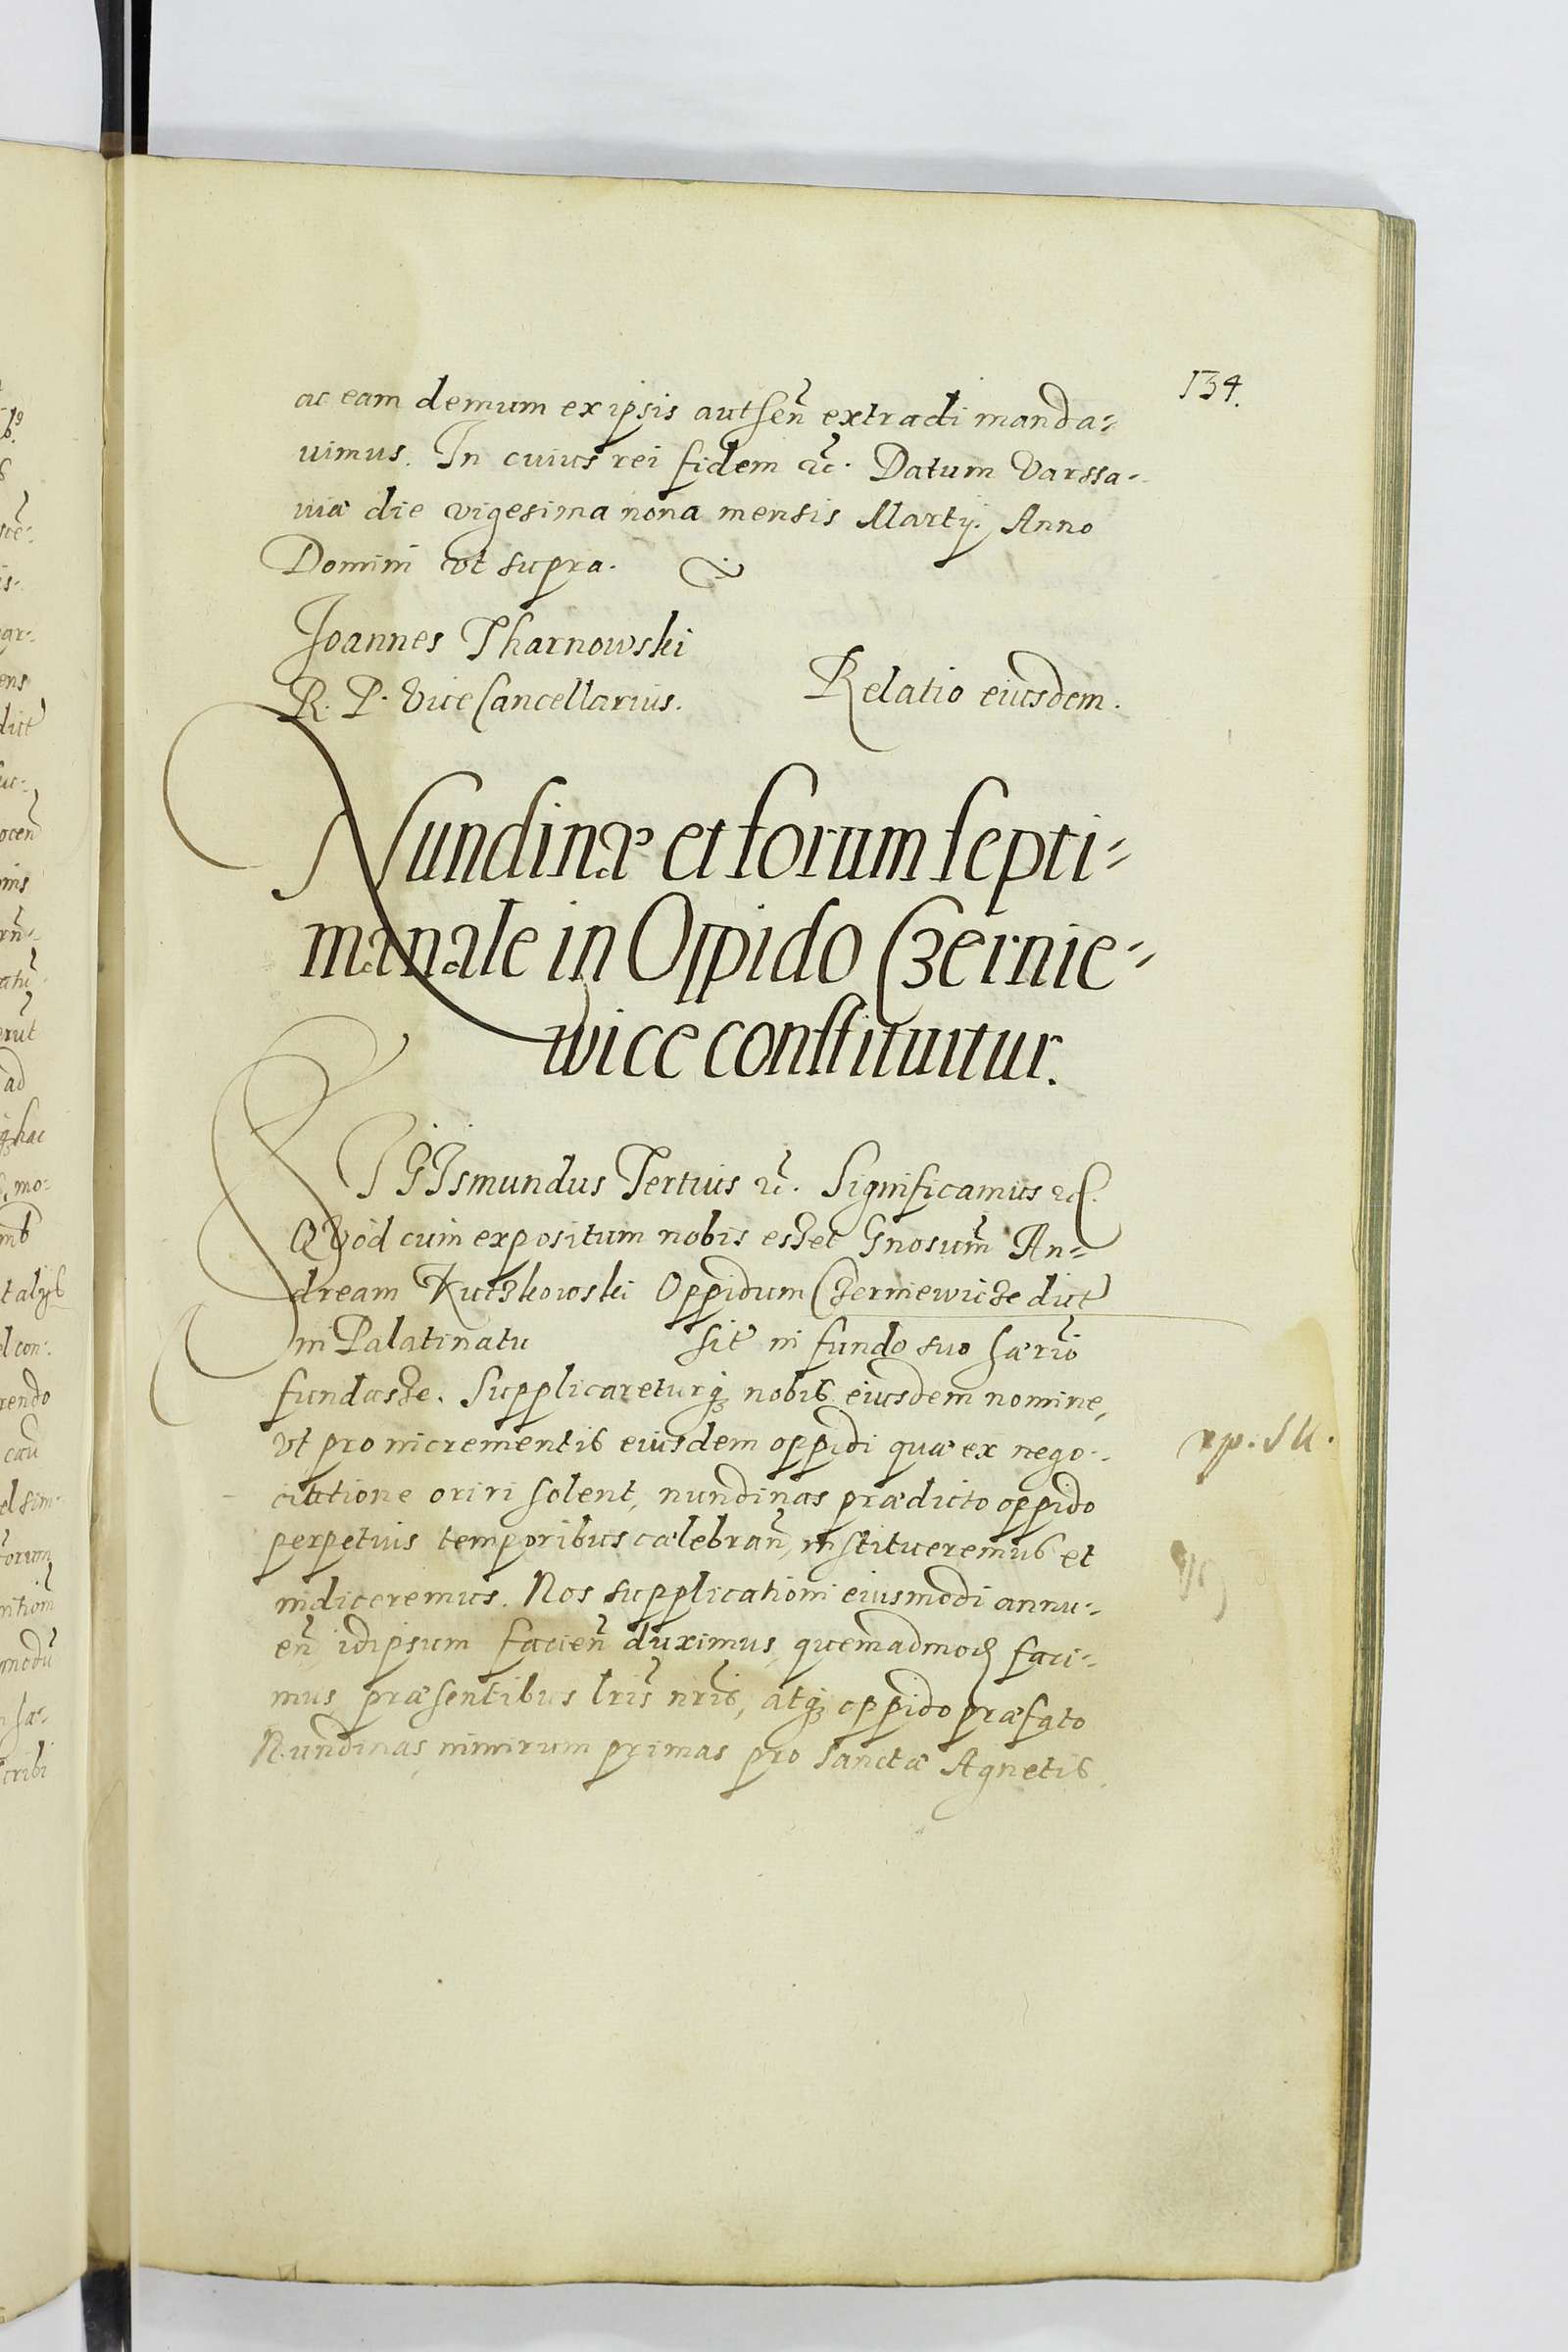 134.
ac eam demum ex ipsis autSen̄ extradi manda=
uimus. In cuius rei fidem &c̄. Datum Varssa=
uiæ die vigesima nona mensis Martÿ. Anno
Domini vt supra.
Joannes Tharnowski
R. P. ViceCancellarius.
Relatio eiusdem.
Nundinæ et forum septi=
manale in Oppido Czernie=
wice constituitur.
SIGISmundus Tertius &c̄. Significamus &c.
QVod cum expositum nobis esset Gnosum̄ An=
dream Kuczkowski Oppidum Czerniewicze dict
in Palatinatu sit in fundo suo hærio
fundasse. Supplicareturq₃ nobis eiusdem nomine,
vt pro incrementis eiusdem oppidi quæ ex nego=
ciatione oriri solent, nundinas prædicto oppido
perpetuis temporibus cælebran̄, institueremus et
indiceremus. Nos supplicationi eiusmodi annu=
en̄ idipsum facien̄ duximus, quemadmod faci=
mus præsentibus lris̄ nris̄, atq₃ oppido præfato
Nundinas, nimirum primas pro Sanctæ Agnetis,